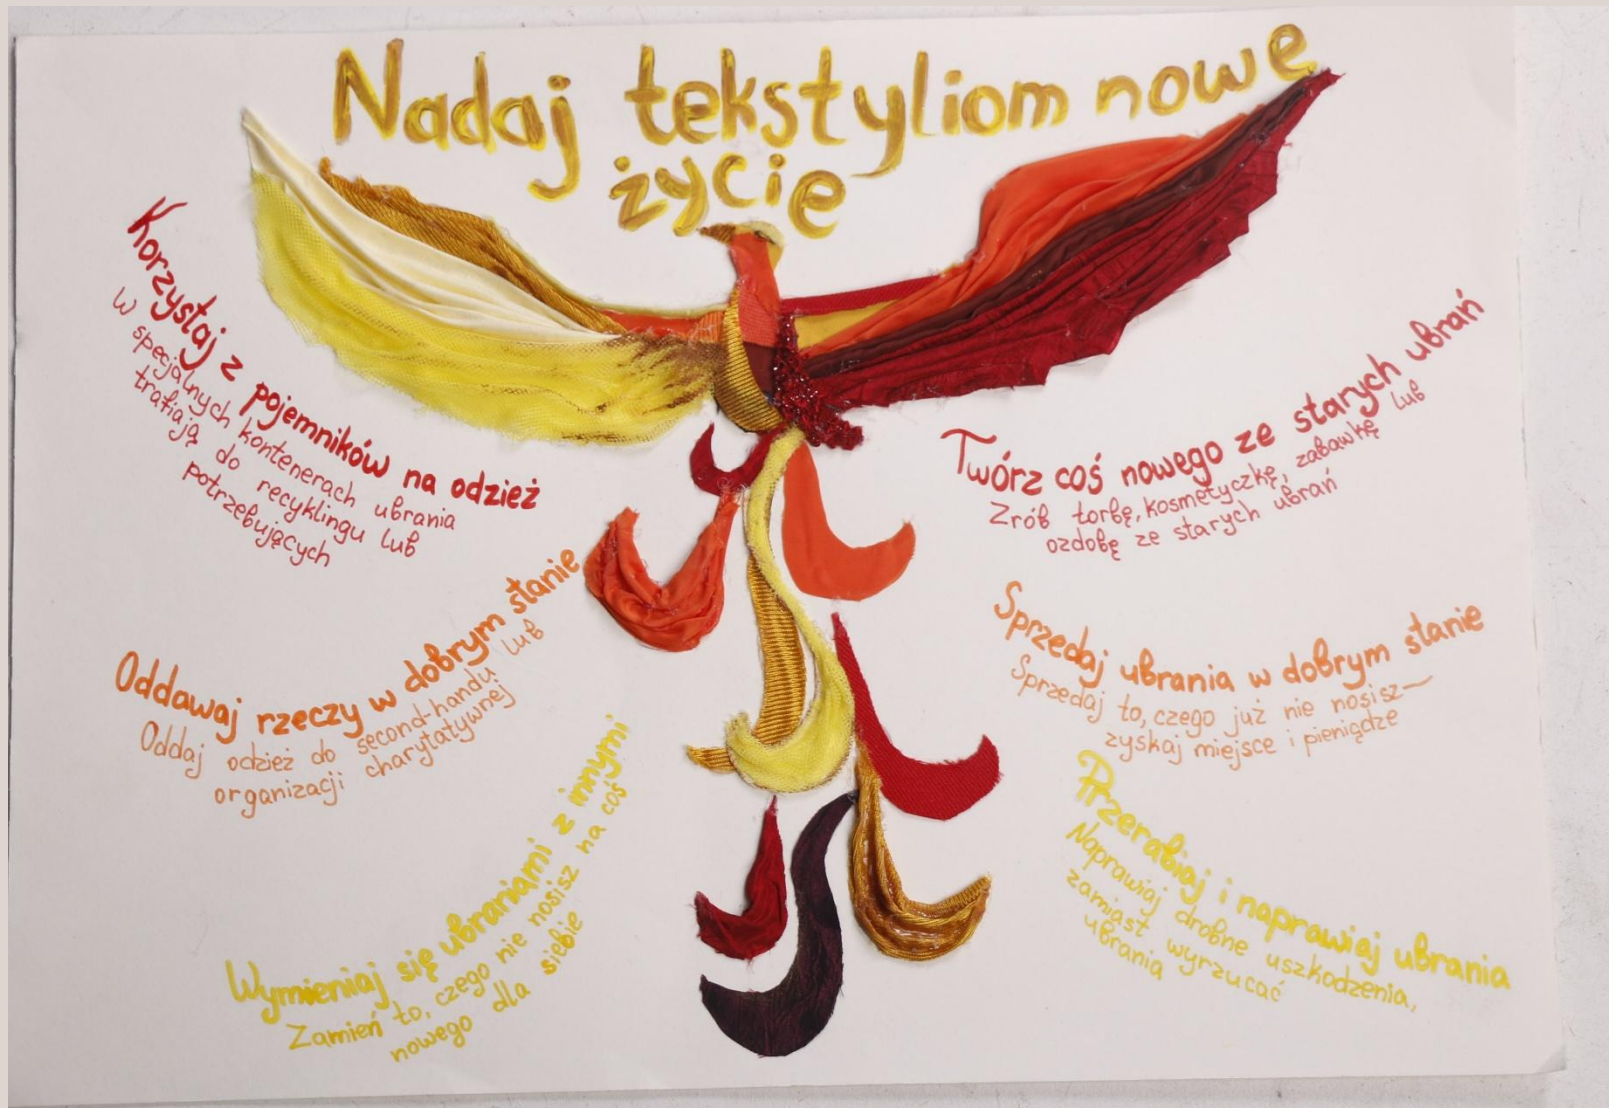 Nadaj tekstyliom nowe
życie
Korzystaj z pojemników na odzież
W specjalnych kontenerach ubrania
trafiają do recyklingu lub
potrzebujących
Oddawaj rzeczy w dobrym stanie
Oddaj odzież do second-handu lub
organizacji charytatywnej
Wymieniaj się ubraniami z innymi
Zamień to, czego nie nosisz na coś
nowego dla siebie
Twórz coś nowego ze starych ubrań
Zrób torbę, kosmetyczkę, zabawkę lub
ozdobę ze starych ubrań
Sprzedaj ubrania w dobrym stanie
Sprzedaj to, czego już nie nosisz—
zyskaj miejsce i pieniądze
Przerabiaj i naprawiaj ubrania
Naprawiaj drobne uszkodzenia,
zamiast wyrzucać
ubrania